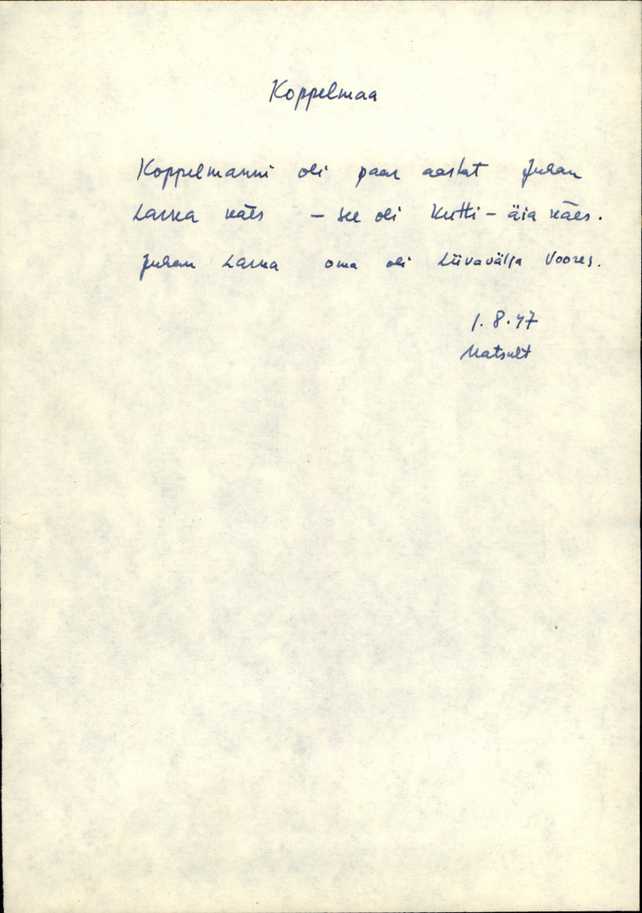 Koppelmaa
Koppelmanni oli paar aastat Juhan
Lassa käes – see oli Kutti-äia käes.
Juhan Lassa oma oli Liivavälja Voores.
1.8.47
Matsalt